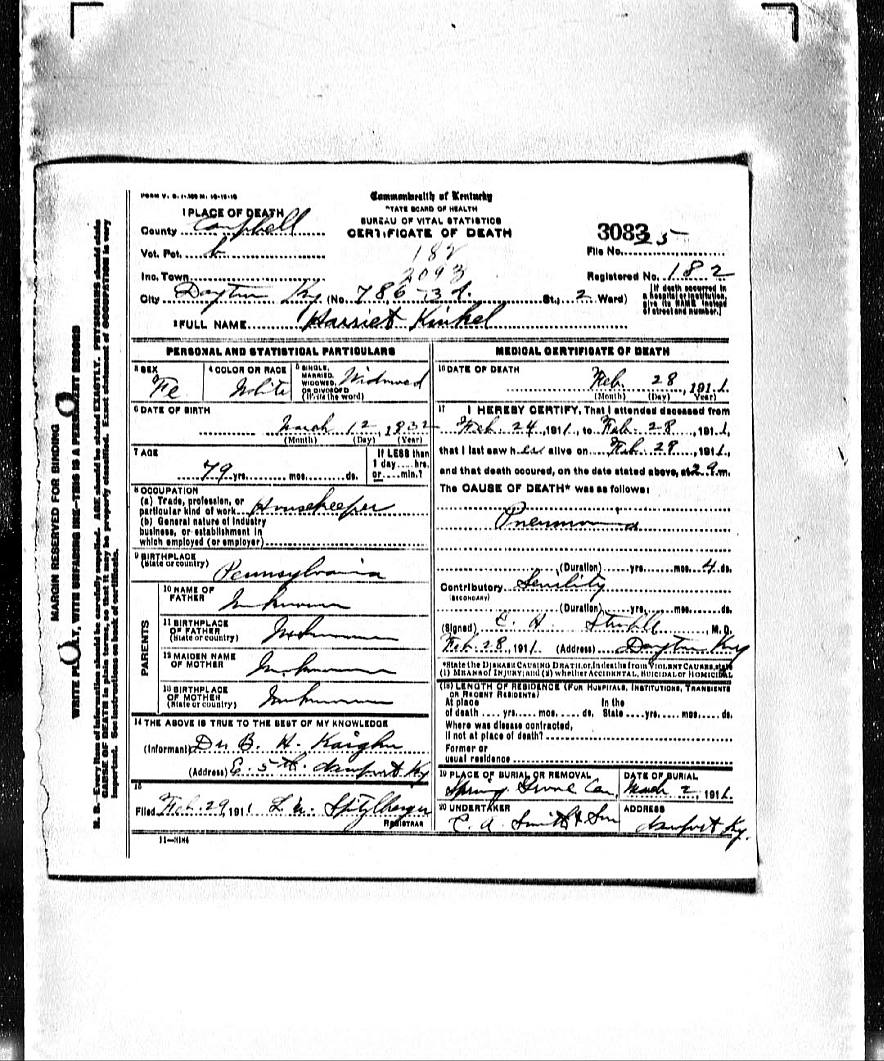 FORM V. S. 1-100 M. 10-15-10
Commonwealth of Kentucky
STATE BOARD OF HEALTH
BUREAU OF VITAL STATISTICS
CERTIFICATE OF DEATH
1 PLACE OF DEATH
County Campbell
Vot. Pct. 6
182
2093
30835
File No.
Inc. Town
Registered No. 182
City Dayton Ky (No. 786-3d. St.; 2 Ward)
[If death occurred in a hospital or institution, give its NAME instead of street and number.]
2 FULL NAME Harriet Kinkel
PERSONAL AND STATISTICAL PARTICULARS
3 SEX Fe
4 COLOR OR RACE White
5 SINGLE, MARRIED, WIDOWED, OR DIVORCED (Write the word) Widowed
6 DATE OF BIRTH
March 12, 1832
(Month) (Day) (Year)
7 AGE
79 yrs. mos. ds.
If LESS than 1 day hrs. or min.?
8 OCCUPATION
(a) Trade, profession, or particular kind of work Housekeeper
(b) General nature of industry
business, or establishment in
which employed (or employer)
9 BIRTHPLACE
(State or country) Pennsylvania
PARENTS
10 NAME OF FATHER Unknown
11 BIRTHPLACE OF FATHER (State or country) Unknown
12 MAIDEN NAME OF MOTHER Unknown
13 BIRTHPLACE OF MOTHER (State or country) Unknown
14 THE ABOVE IS TRUE TO THE BEST OF MY KNOWLEDGE
(Informant) Dr B. H.
(Address) E. 5th Newport Ky
15
Filed Feb. 29, 1911 REGISTRAR
11-3184
MEDICAL CERTIFICATE OF DEATH
16 DATE OF DEATH
Feb. 28, 1911.
(Month) (Day) (Year)
17 I HEREBY CERTIFY, That I attended deceased from
Feb. 24, 1911, to Feb. 28, 1911,
that I last saw her alive on Feb. 28, 1911,
and that death occured, on the date stated above, at 2 a m.
The CAUSE OF DEATH* was as follows:
Pneumonia
(Duration) yrs. mos. 4 ds.
Contributory Senility
(SECONDARY)
(Duration) yrs. mos. ds.
(Signed) C. H. M. D.
Feb. 28, 1911. (Address) Dayton Ky
*State the DISEASE CAUSING DEATH, or, in deaths from VIOLENT CAUSES, state
(1) MEANS OF INJURY; and (2) whether ACCIDENTAL, SUICIDAL or HOMICIDAL
(18) LENGTH OF RESIDENCE (FOR HOSPITALS, INSTITUTIONS, TRANSIENTS
OR RECENT RESIDENTS)
At place of death yrs. mos. ds. In the State yrs. mos. ds.
Where was disease contracted,
if not at place of death?
Former or
usual residence
19 PLACE OF BURIAL OR REMOVAL
Spring Grove Cem
DATE OF BURIAL
March 2, 1911.
20 UNDERTAKER
C. A. Smith & Son
ADDRESS
Newport Ky.
MARGIN RESERVED FOR BINDING
WRITE PLAINLY, WITH UNFADING INK—THIS IS A PERMANENT RECORD
N. B.—Every item of information should be carefully supplied. AGE should be stated EXACTLY. PHYSICIANS should state
CAUSE OF DEATH in plain terms, so that it may be properly classified. Exact statement of OCCUPATION is very
important. See instructions on back of certificate.